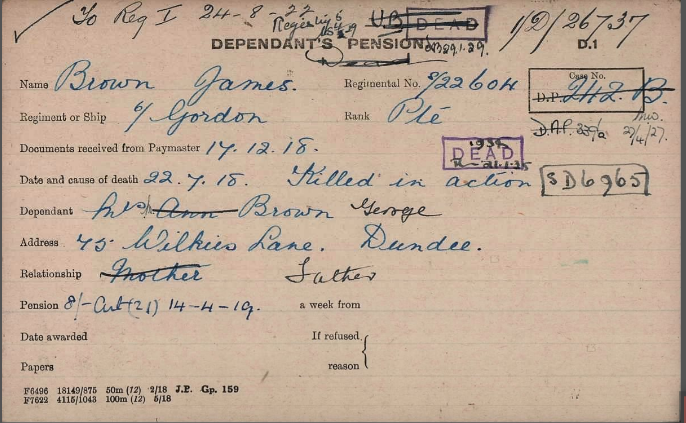 ✓ To Reg I 24-8-22
UB DEAD
1/D/26737
DEPENDANT'S PENSION.
D.1
Name Brown James. Regimental No. S/22604
Case No. D.P. 242 B.
Regiment or Ship 6/ Gordon Rank Pte
27/4/27.
Documents received from Paymaster 17.12.18.
DEAD
Date and cause of death 22.7.18. Killed in action
SD6965
Dependant Mrs Ann Brown George
Address 75 Wilkies Lane. Dundee.
Relationship Mother Father
Pension 8/- Art (21) 14-4-19. a week from
Date awarded If refused,
Papers reason
F6496 18149/875 50m (12) 2/18 J.P. Gp. 159
F7622 4115/1043 100m (12) 5/18